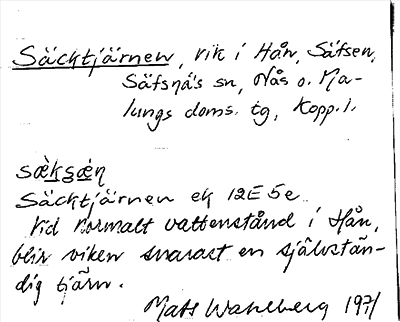 Säcktjärnen, vik i Hån, Säfsen,
Säfsnäs sn, Nås o. Ma-
lungs doms. tg, Kopp. l.
Säcktjärnen ek 12E 5e
Vid normalt vattenstånd i Hån,
blir viken snarast en självstän-
dig tjärn.
Mats Wahlberg 1971